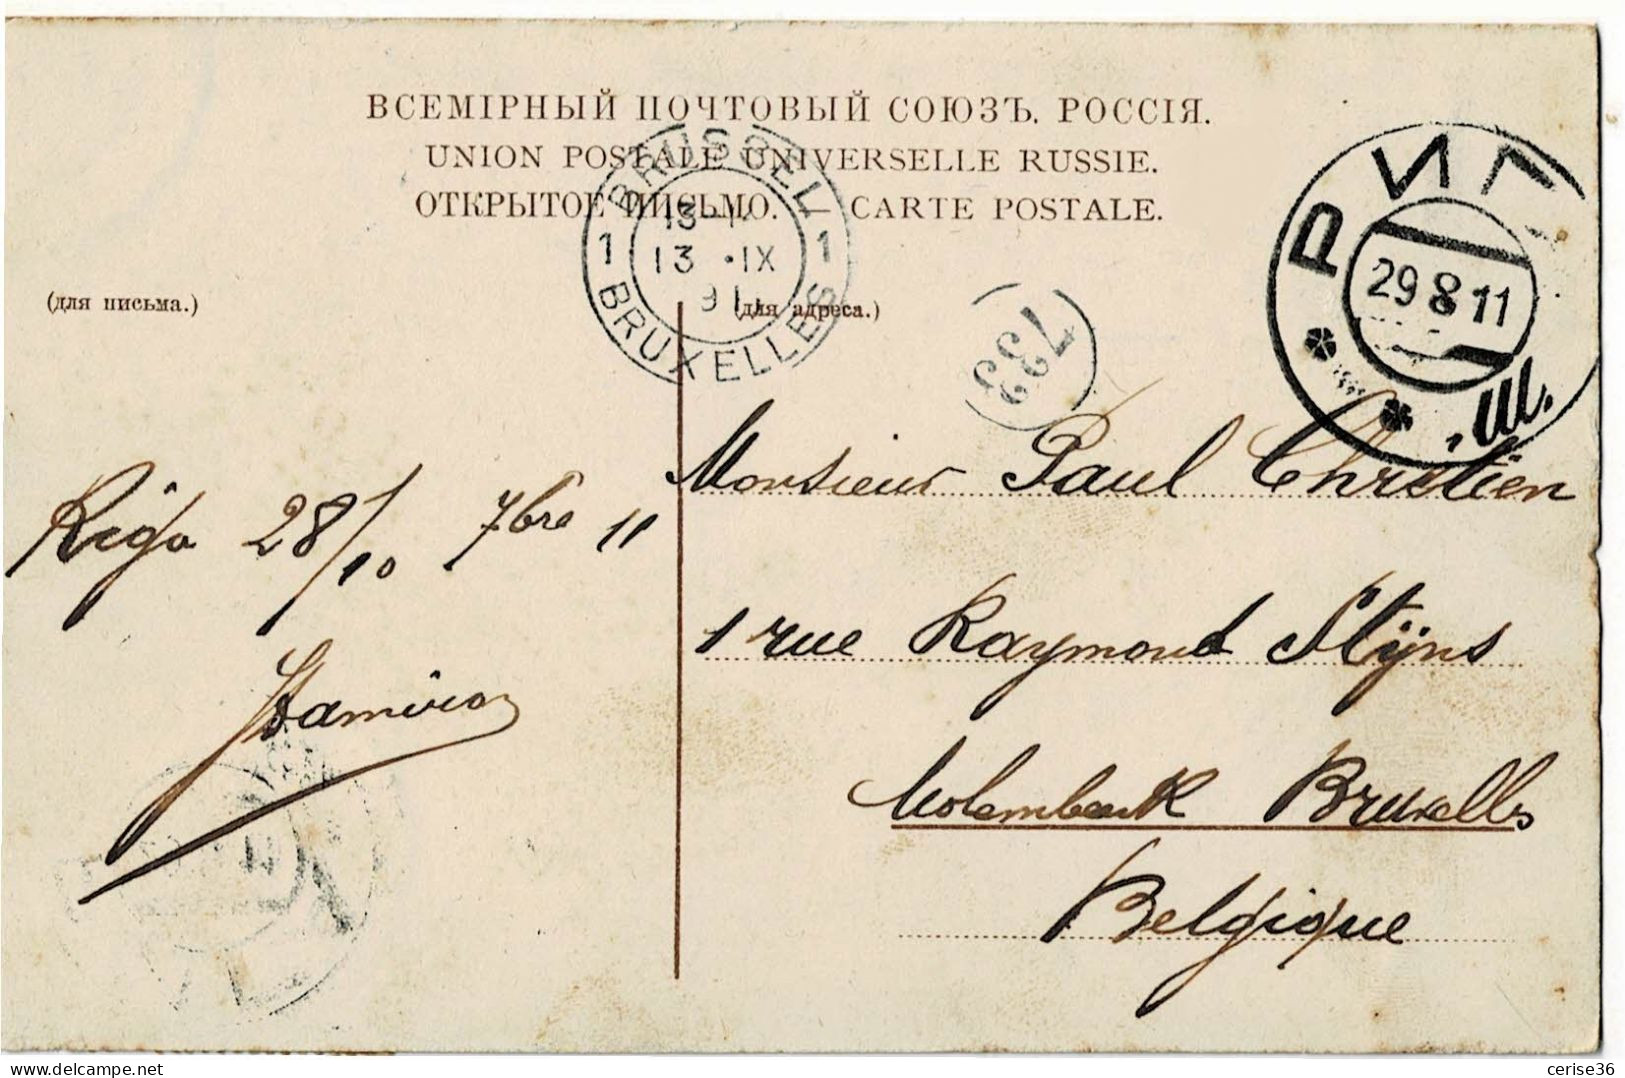 ВСЕМІРНЫЙ ПОЧТОВЫЙ СОЮЗЪ. РОССІЯ.
UNION POSTALE UNIVERSELLE RUSSIE.
ОТКРЫТОЕ ПИСЬМО. — CARTE POSTALE.
BRUSSEL
1 1
13 · IX
BRUXELLES
РИГ
29 8 11
733
(для письма.)
(для адреса.)
Riga 28/10 7bre 11
Monsieur Paul Chrétien
1 rue Raymond Stÿns
Molenbeek Bruxelles
Belgique
delcampe.net
cerise36